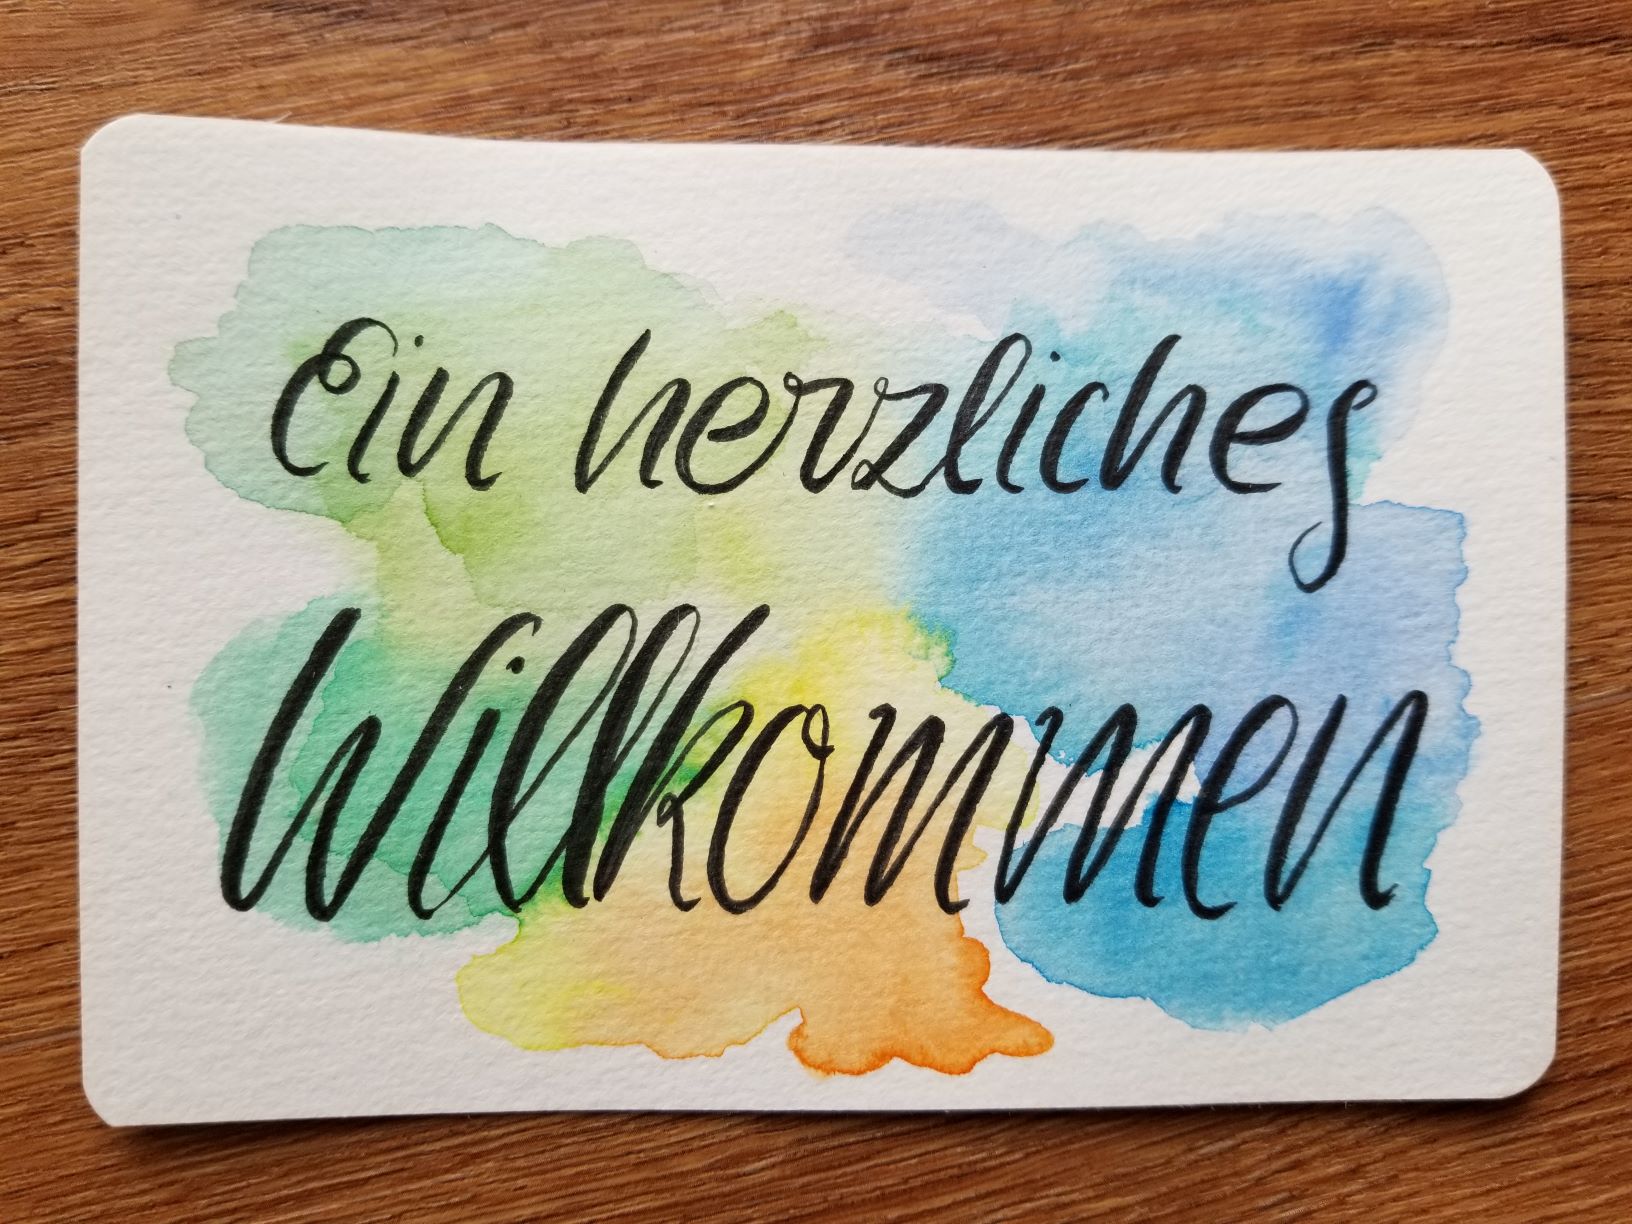 Ein herzliches
Willkommen